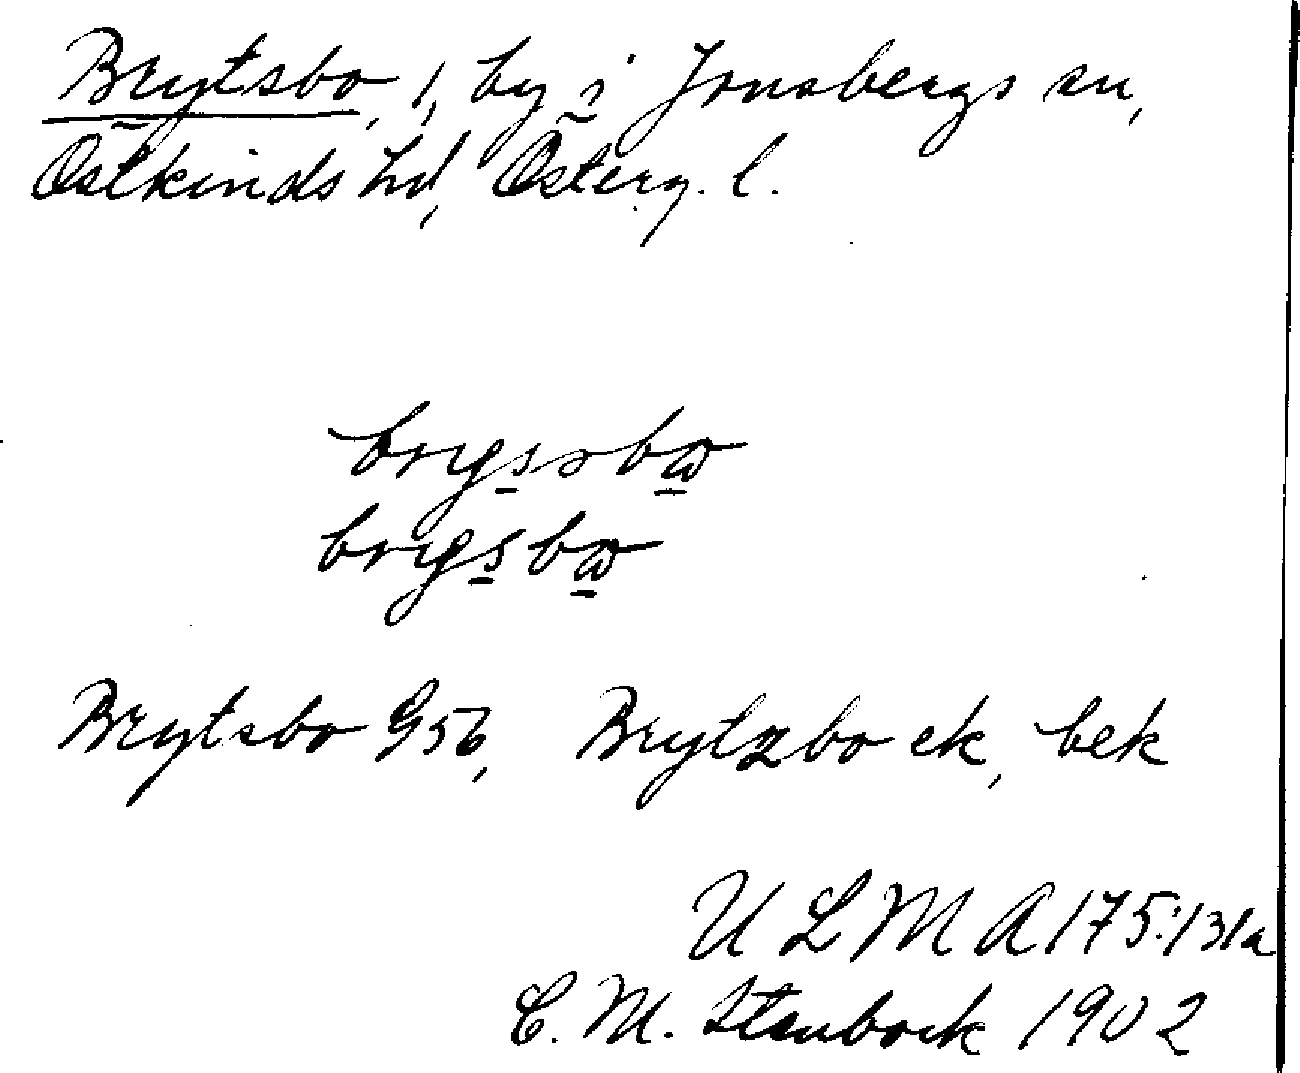 Brytsbo, 1, by i Jonsbergs sn,
Östkinds hd, Österg. l.
bryssbω
brysbω
Brytsbo G56, Brytzbo ek, bek
U L M A 175:131a
C. M. Stenbock 1902